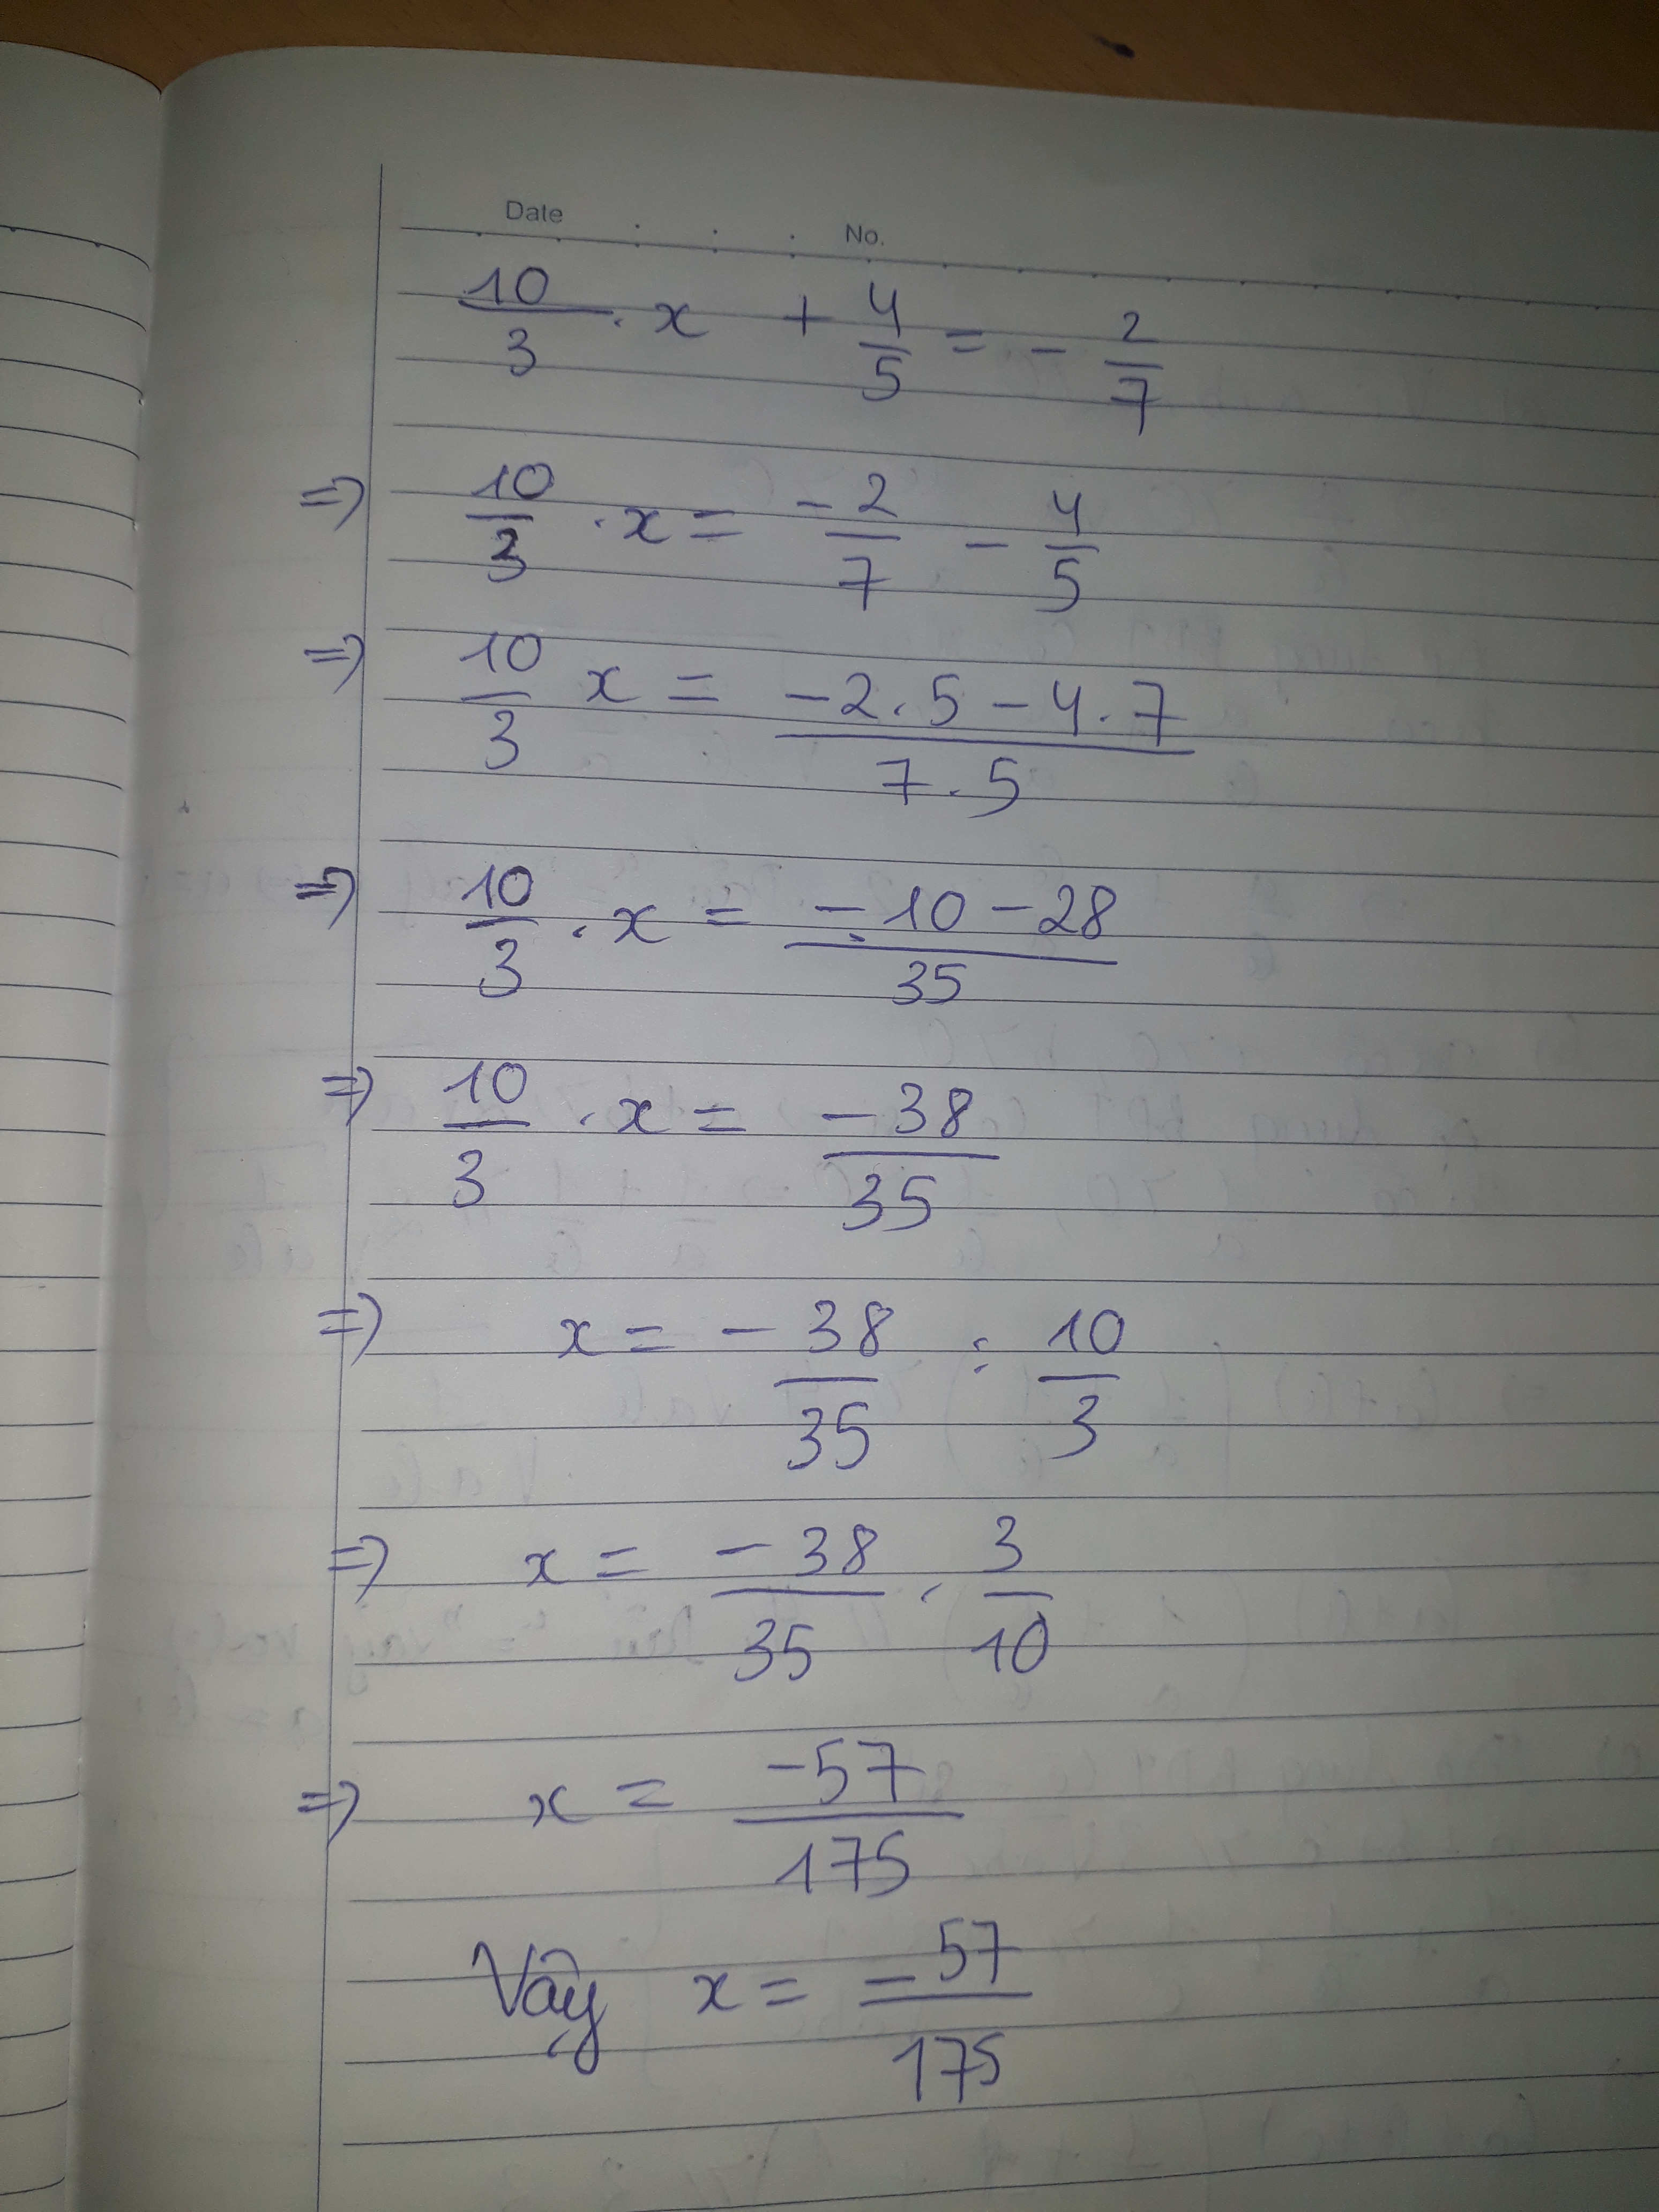 Date No.
10/3 . x + 4/5 = - 2/7
=> 10/3 . x = -2/7 - 4/5
=> 10/3 x = (-2.5 - 4.7)/(7.5)
=> 10/3 . x = (-10 - 28)/35
=> 10/3 . x = -38/35
=> x = -38/35 : 10/3
=> x = -38/35 . 3/10
=> x = -57/175
Vậy x = -57/175